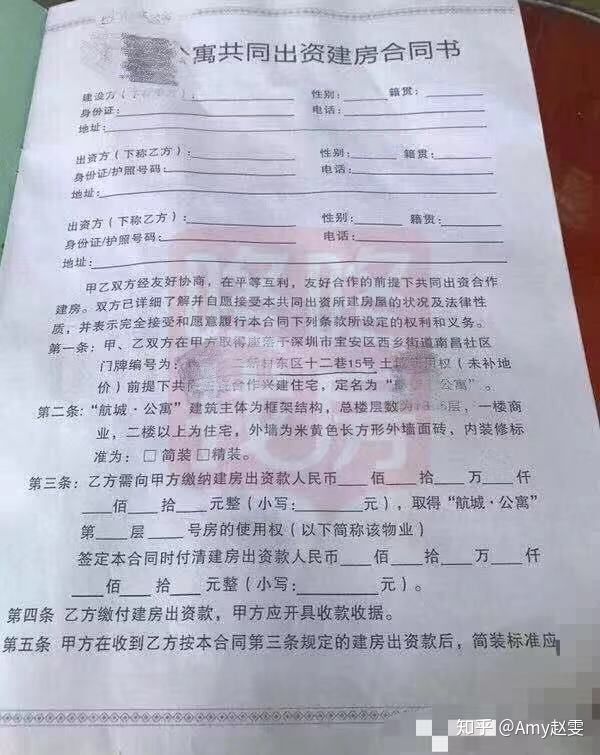 公寓共同出资建房合同书
建设方（下称甲方）：________ 性别：____ 籍贯：____
身份证：________ 电话：________
地址：________
出资方（下称乙方）：________ 性别：____ 籍贯：____
身份证/护照号码：________ 电话：________
地址：________
出资方（下称乙方）：________ 性别：____ 籍贯：____
身份证/护照号码：________ 电话：________
地址：________
甲乙双方经友好协商，在平等互利，友好合作的前提下共同出资合作
建房。双方已详细了解并自愿接受本共同出资所建房屋的状况及法律性
质，并表示完全接受和愿意履行本合同下列条款所设定的权利和义务。
第一条：甲、乙双方在甲方取得座落于深圳市宝安区西乡街道南昌社区
门牌编号为：二新村东区十二巷15号土地使用权（未补地
价）前提下共同出资合作兴建住宅，定名为“公寓”。
第二条：“航城·公寓”建筑主体为框架结构，总楼层数为层，一楼商
业，二楼以上为住宅，外墙为米黄色长方形外墙面砖，内装修标
准为：□简装□精装。
第三条：乙方需向甲方缴纳建房出资款人民币___佰___拾___万___仟
___佰___拾___元整（小写：________元），取得“航城·公寓”
第___层___号房的使用权（以下简称该物业）
签定本合同时付清建房出资款人民币___佰___拾___万___仟
___佰___拾___元整（小写：________元）。
第四条 乙方缴付建房出资款，甲方应开具收款收据。
第五条 甲方在收到乙方按本合同第三条规定的建房出资款后，简装标准应
知乎 @Amy赵雯